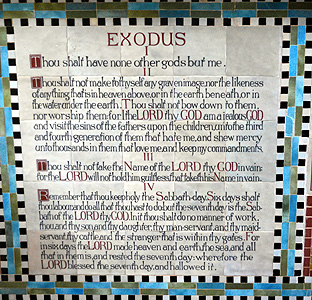 EXODUS
I
Thou shalt have none other gods but me.
II
Thou shalt not make to thyself any graven image, nor the likeness
of any thing that is in heaven above, or in the earth beneath, or in
the water under the earth. Thou shalt not bow down to them,
nor worship them: for I the LORD thy GOD am a jealous GOD
and visit the sins of the fathers upon the children, unto the third
and fourth generation of them that hate me, and shew mercy
unto thousands in them that love me, and keep my commandments.
III
Thou shalt not take the Name of the LORD thy GOD in vain:
for the LORD will not hold him guiltless that taketh his Name in vain.
IV
Remember that thou keep holy the Sabbath-day. Six days shalt
thou labour, and do all that thou hast to do; but the seventh day is the Sab-
bath of the LORD thy GOD. In it thou shalt do no manner of work,
thou, and thy son, and thy daughter, thy man-servant, and thy maid-
servant, thy cattle, and the stranger that is within thy gates. For
in six days the LORD made heaven and earth, the sea, and all
that in them is, and rested the seventh day: wherefore the
LORD blessed the seventh day, and hallowed it.